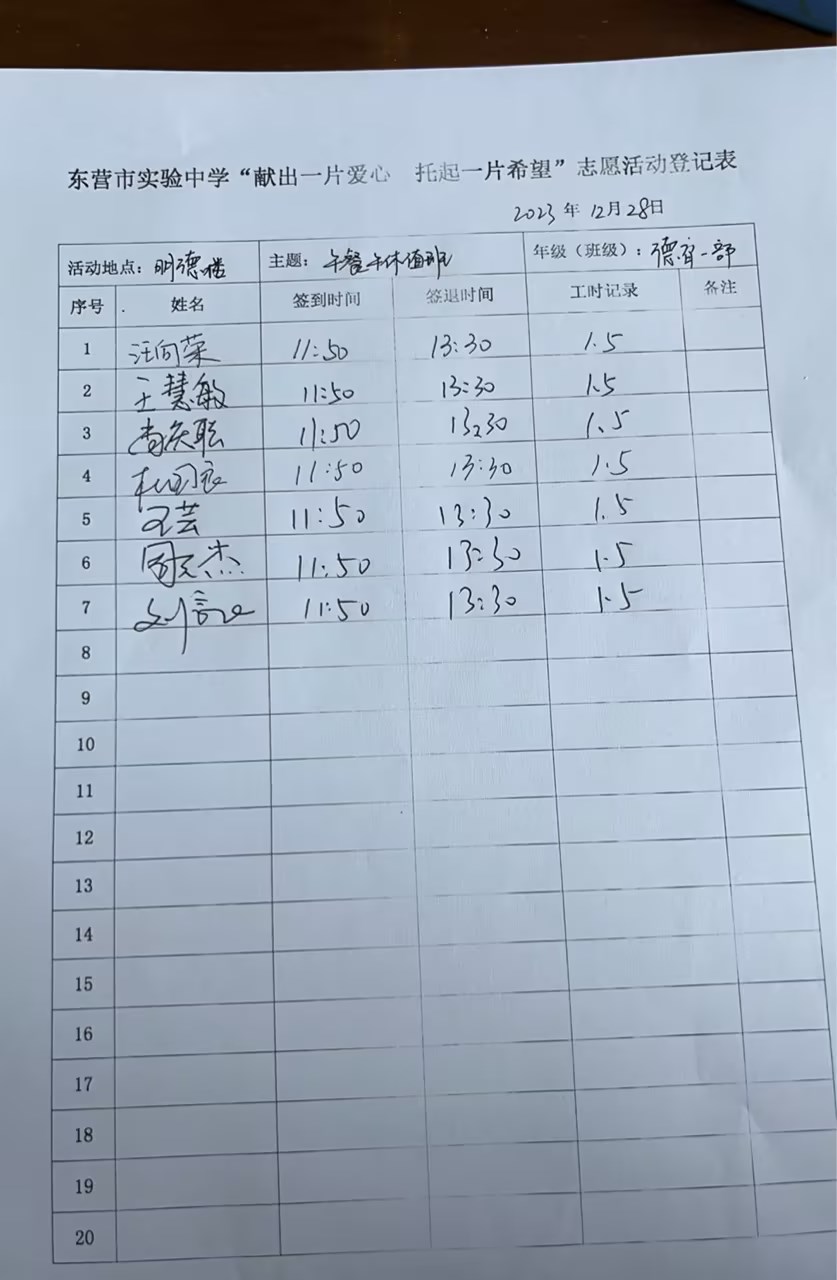 东营市实验中学“献出一片爱心 托起一片希望”志愿活动登记表
2023年12月28日
活动地点：明德楼 主题：午餐午休值班 年级（班级）：德育一部
序号 姓名 签到时间 签退时间 工时记录 备注
1 汪向荣 11:50 13:30 1.5
2 王慧敏 11:50 13:30 1.5
3 11:50 13:30 1.5
4 11:50 13:30 1.5
5 王芸 11:50 13:30 1.5
6 11:50 13:30 1.5
7 11:50 13:30 1.5
8
9
10
11
12
13
14
15
16
17
18
19
20